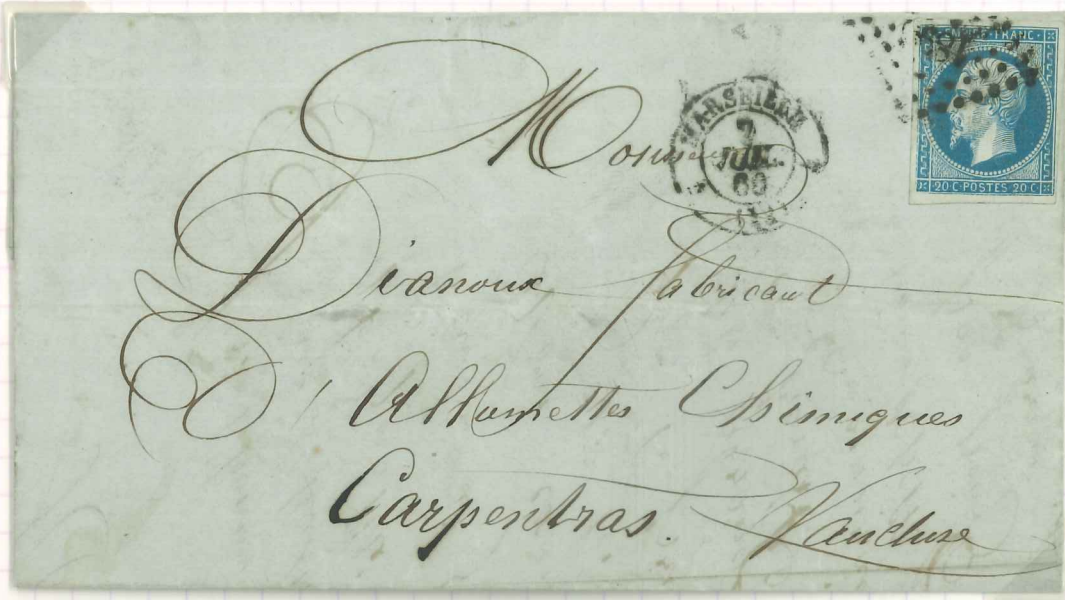 EMPIRE FRANC
20 C POSTES 20 C
MARSEILLE
7
JUIL.
60
Monsieur
Dianoux fabricant
d'Allumettes Chimiques
Carpentras. Vaucluse